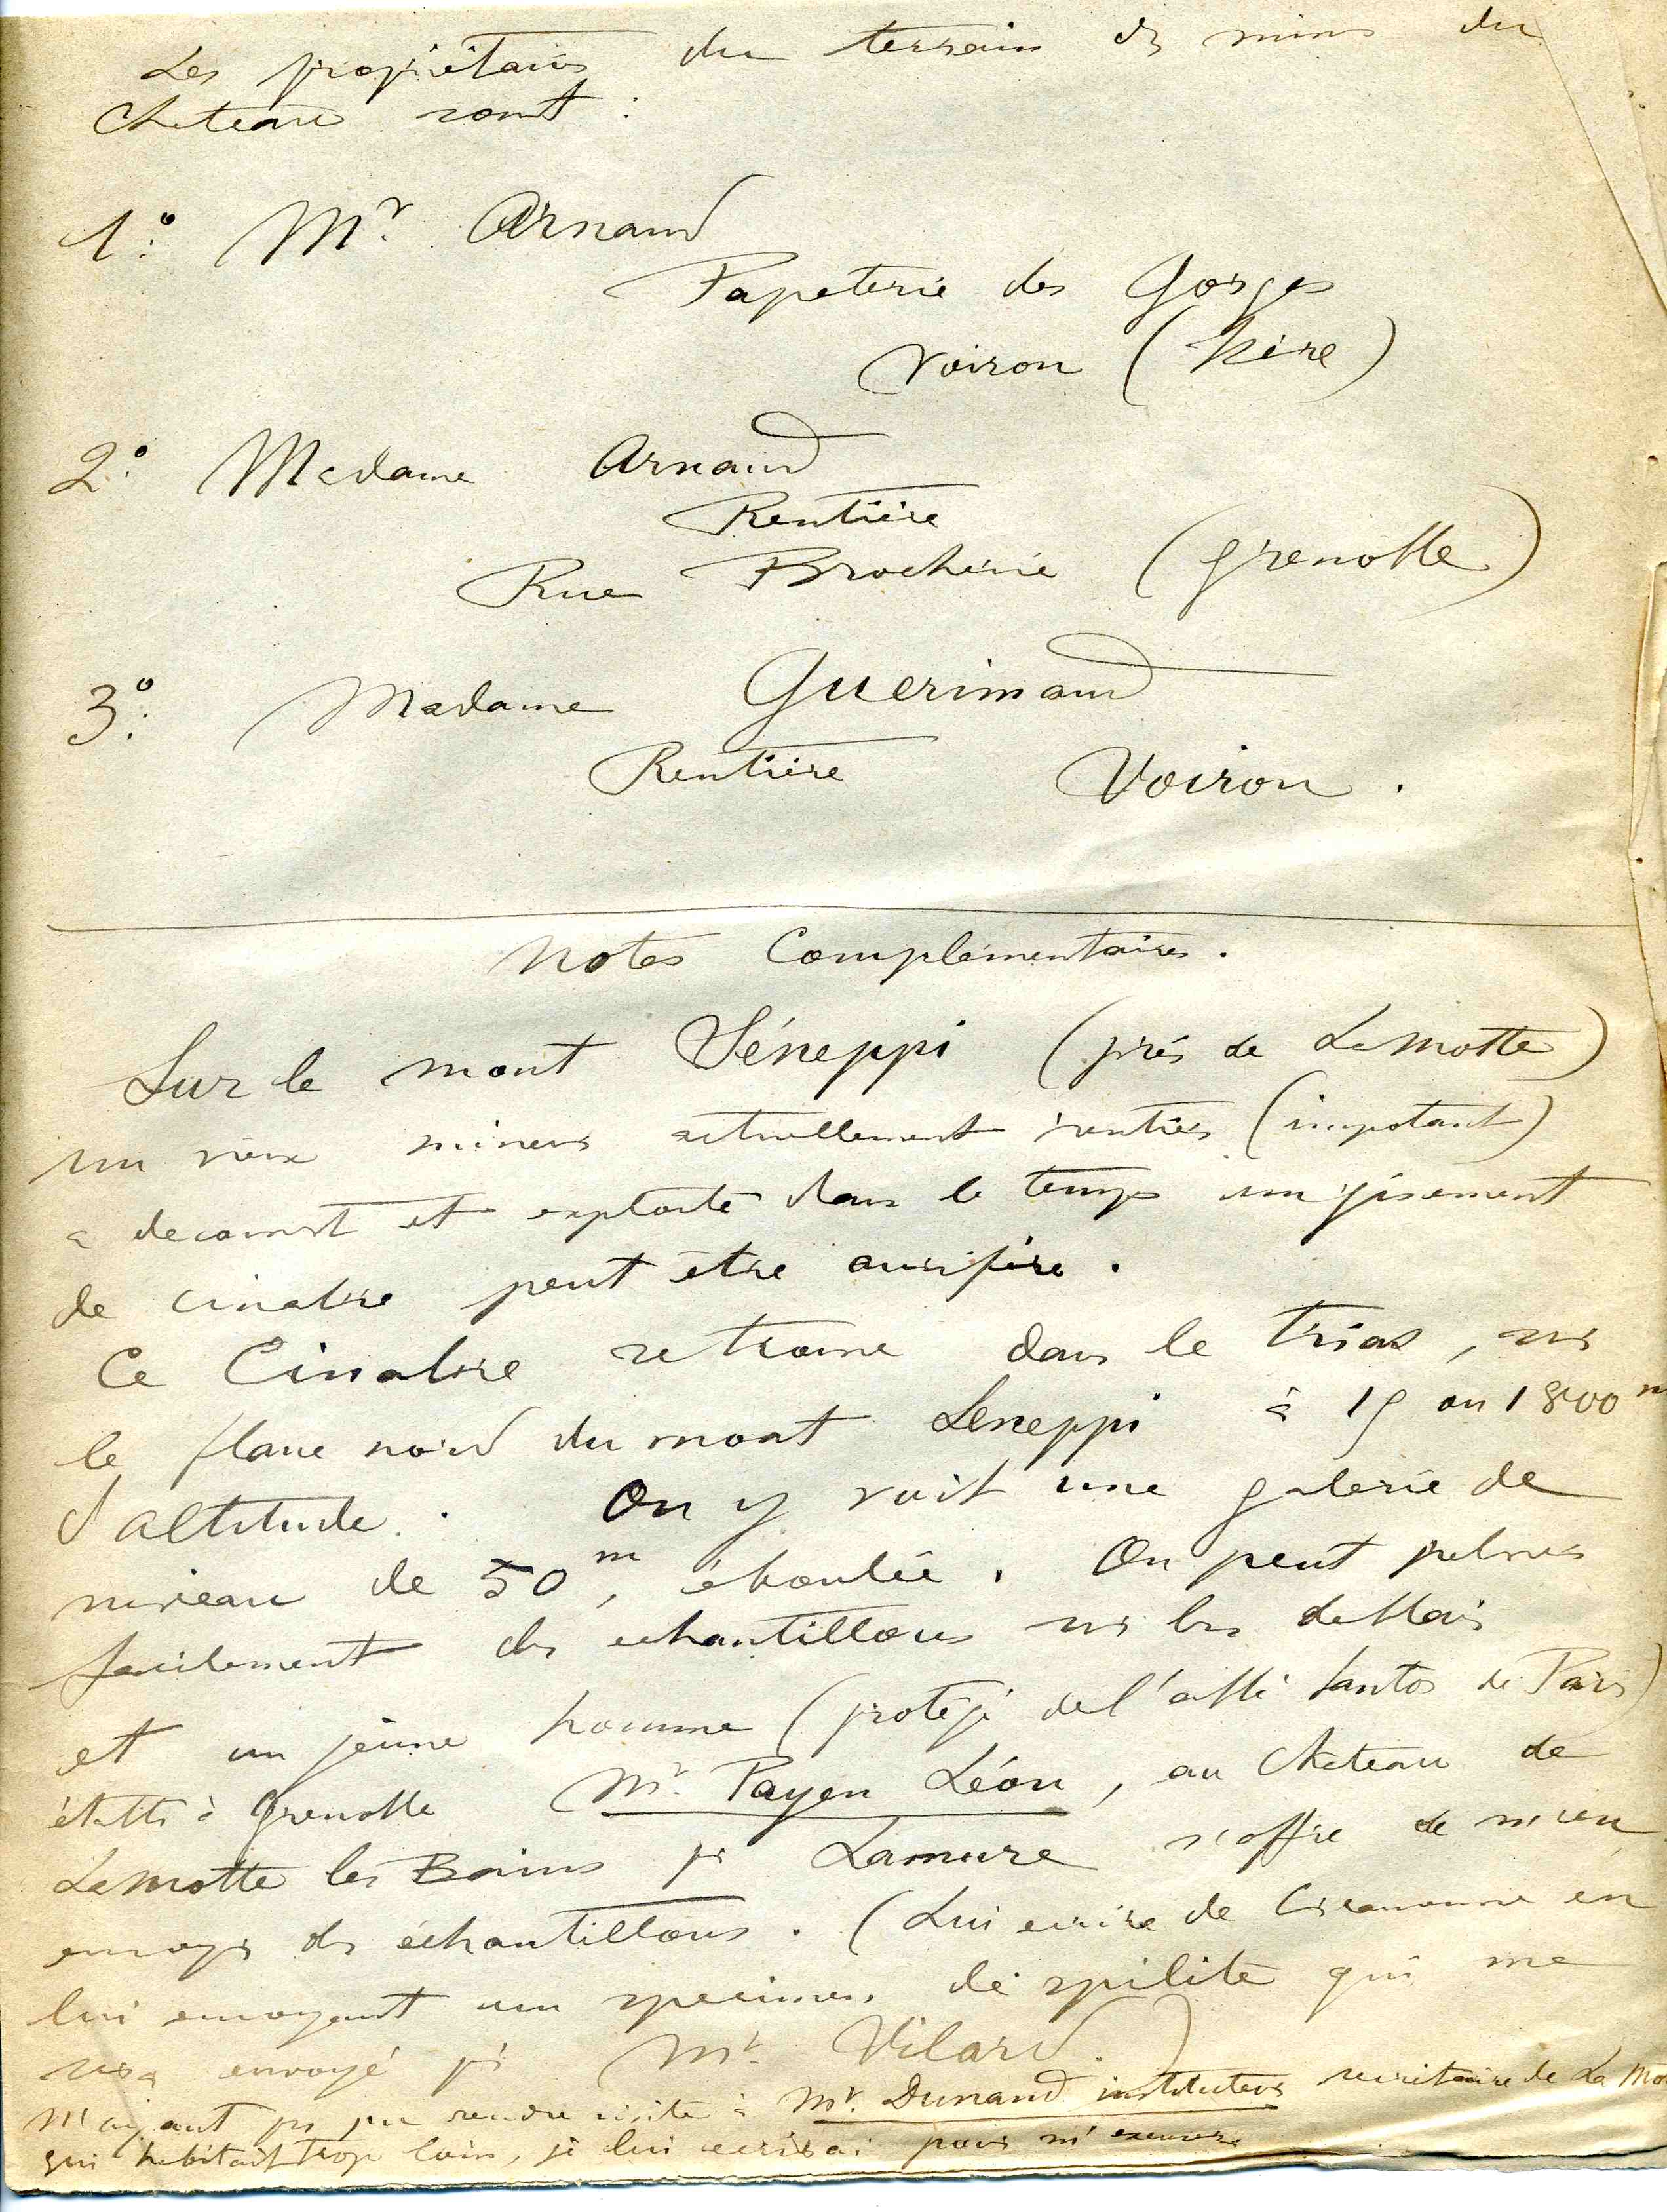 Les propriétaires du terrain des mines du
Chateau sont :
1º Mr Arnaud
Papeterie des Gorges
Voiron (Isère)
2º Madame Arnaud
Rentière
Rue Brocherie (Grenoble)
3º Madame Guerimand
Rentière Voiron.
Notes Complémentaires.
Sur le mont Séneppi (près de LaMotte)
un vieux mineur actuellement rentier (impotant)
a decouvert et exploité dans le temps un gisement
de cinabre peut être aurifère.
Ce Cinabre se trouve dans le trias, sur
le flanc nord du mont Séneppi à 15 ou 1800m
d'altitude. On y voit une galerie de
niveau de 50m, éboulée. On peut prelever
facilement des echantillons sur les deblais
et un jeune homme (protégé de l'abbé Santos de Paris)
établi à Grenoble Mr. Payen Léon, au Chateau de
LaMotte les Bains pr Lamure s'offre de m'en
envoyer des échantillons. (Lui ecrire de en
lui envoyant un specimen de spilite qui me
sera envoyé pr Mr. Vilard.)
N'ayant pas pu rendre visite à Mr. Dunand instituteur secrétaire de La Mo
qui habitait trop loin, je lui ecrirai pour m'excuser